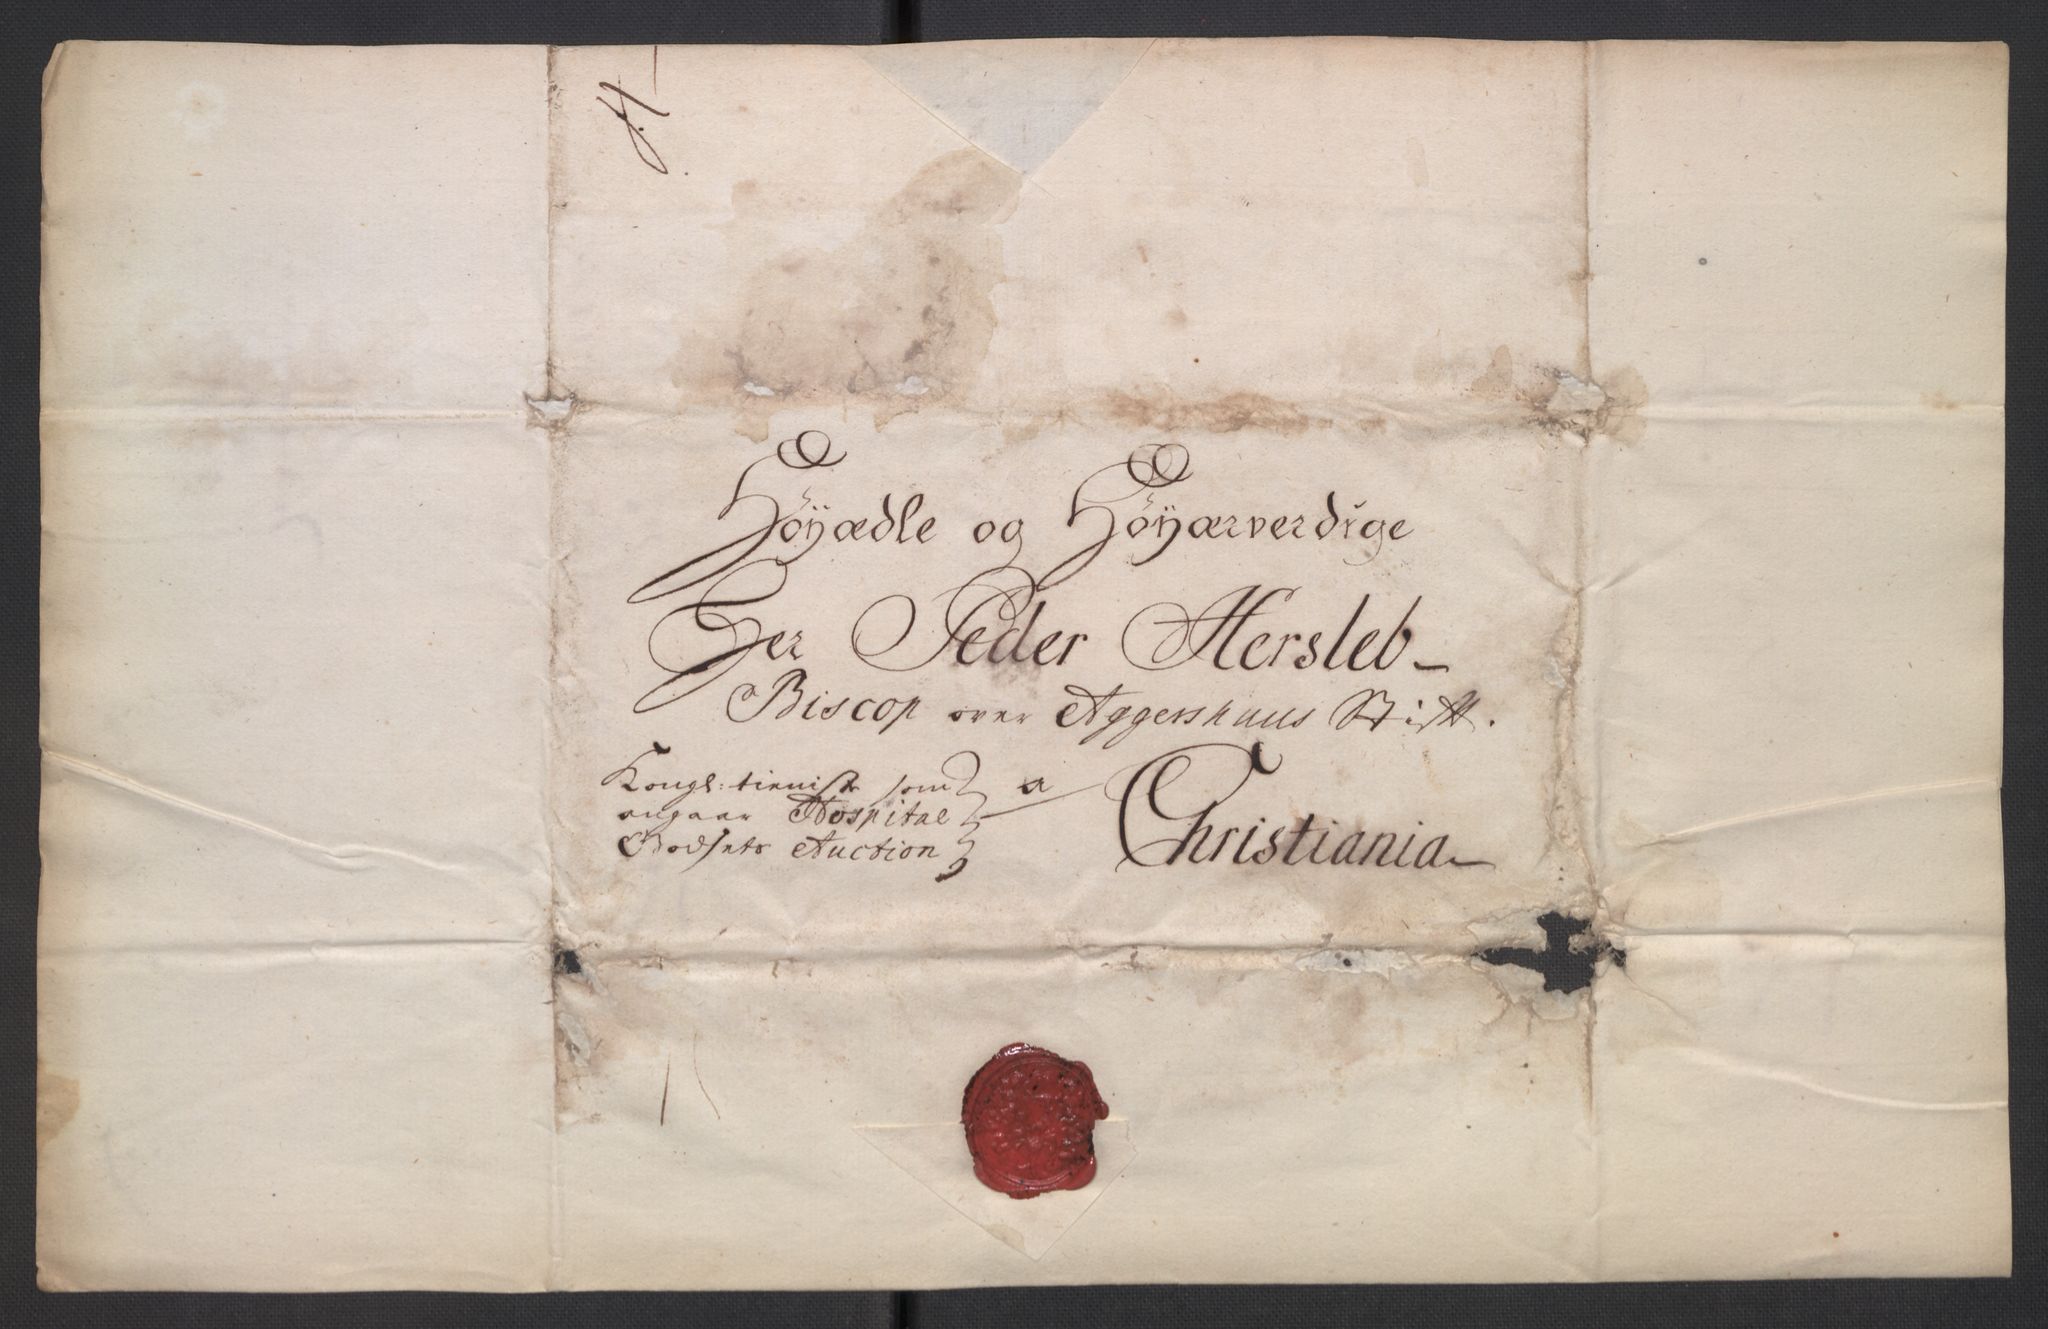 Höÿædle og Höÿærverdige
Her Peder Hersleb
Biscop over Aggershuus Stift.
Kongl: tieniste som
angaar Hospital
Godsets Auction
a
Christiania